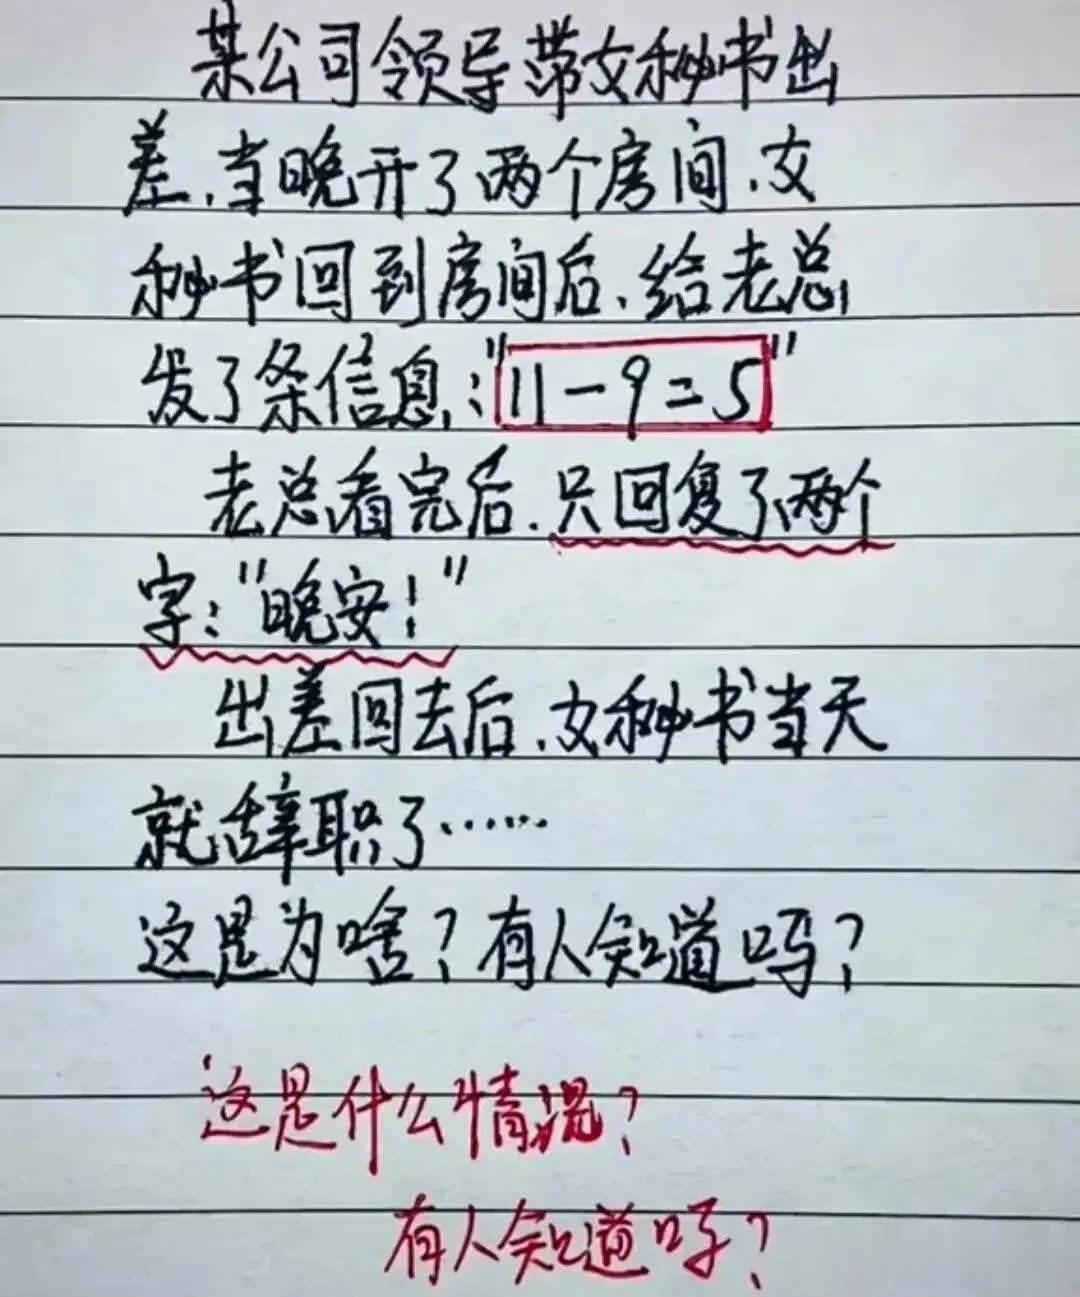 某公司领导带女秘书出
差,当晚开了两个房间,女
秘书回到房间后,给老总
发了条信息:"11-9=5"
老总看完后,只回复了两个
字:"晚安!"
出差回去后,女秘书当天
就辞职了……
这是为啥?有人知道吗?
这是什么情况?
有人知道吗?